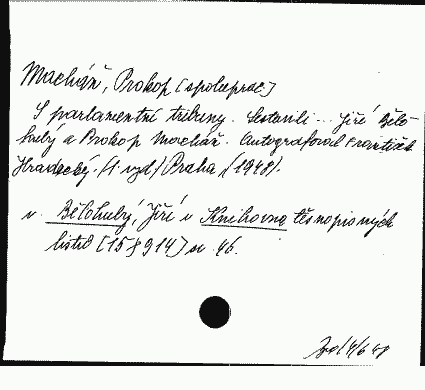 Machář, Prokop [spoluprac.]
S parlamentní tribuny. Sestavili... Jiří Bělo-
hubý a Prokop Machář. Autografoval František
Hradecký. (1. vyd.) Praha (1948).
v. Bělohubý, Jiří v Knihovna těsnopisných
listů [15§914] sv. 46.